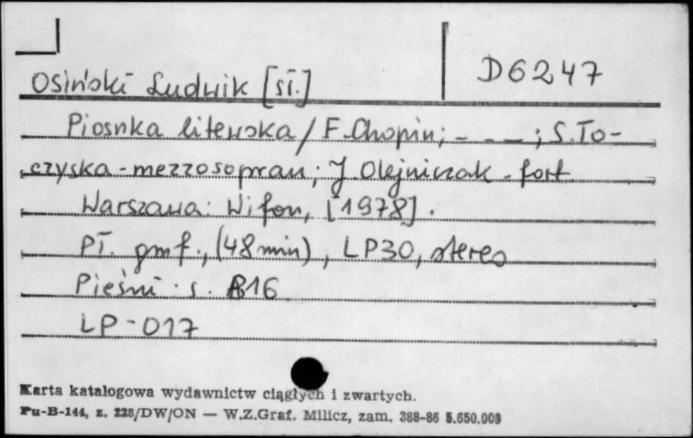 D6247
Osiński Ludwik [sł.]
Piosnka litewska / F. Chopin; - - - ; S. To-
czyska - mezzosopran; J. Olejniczak - fort
Warszawa: Wifon, [1978].
Pł. gmf., (48 min), LP30, stereo
Pieśni · s. B16
LP-017
Karta katalogowa wydawnictw ciągłych i zwartych.
Pu-B-144, z. 228/DW/ON — W.Z.Graf. Milicz, zam. 388-86 5.650.000